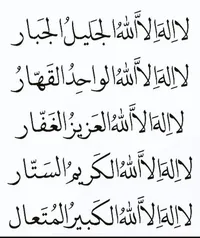 لا اِلهَ اِلاَّ اللهُ الجَليلُ الجَبار
لا اِلهَ اِلاَّ اللهُ الواحِدُ القَهّارُ
لا اِلهَ اِلاَّ اللهُ العَزيزُ الغَفّار
لا اِلهَ اِلاَّ اللهُ الكَريمُ السَتّار
لا اِلهَ اِلاَّ اللهُ الكَبيرُ المُتَعال